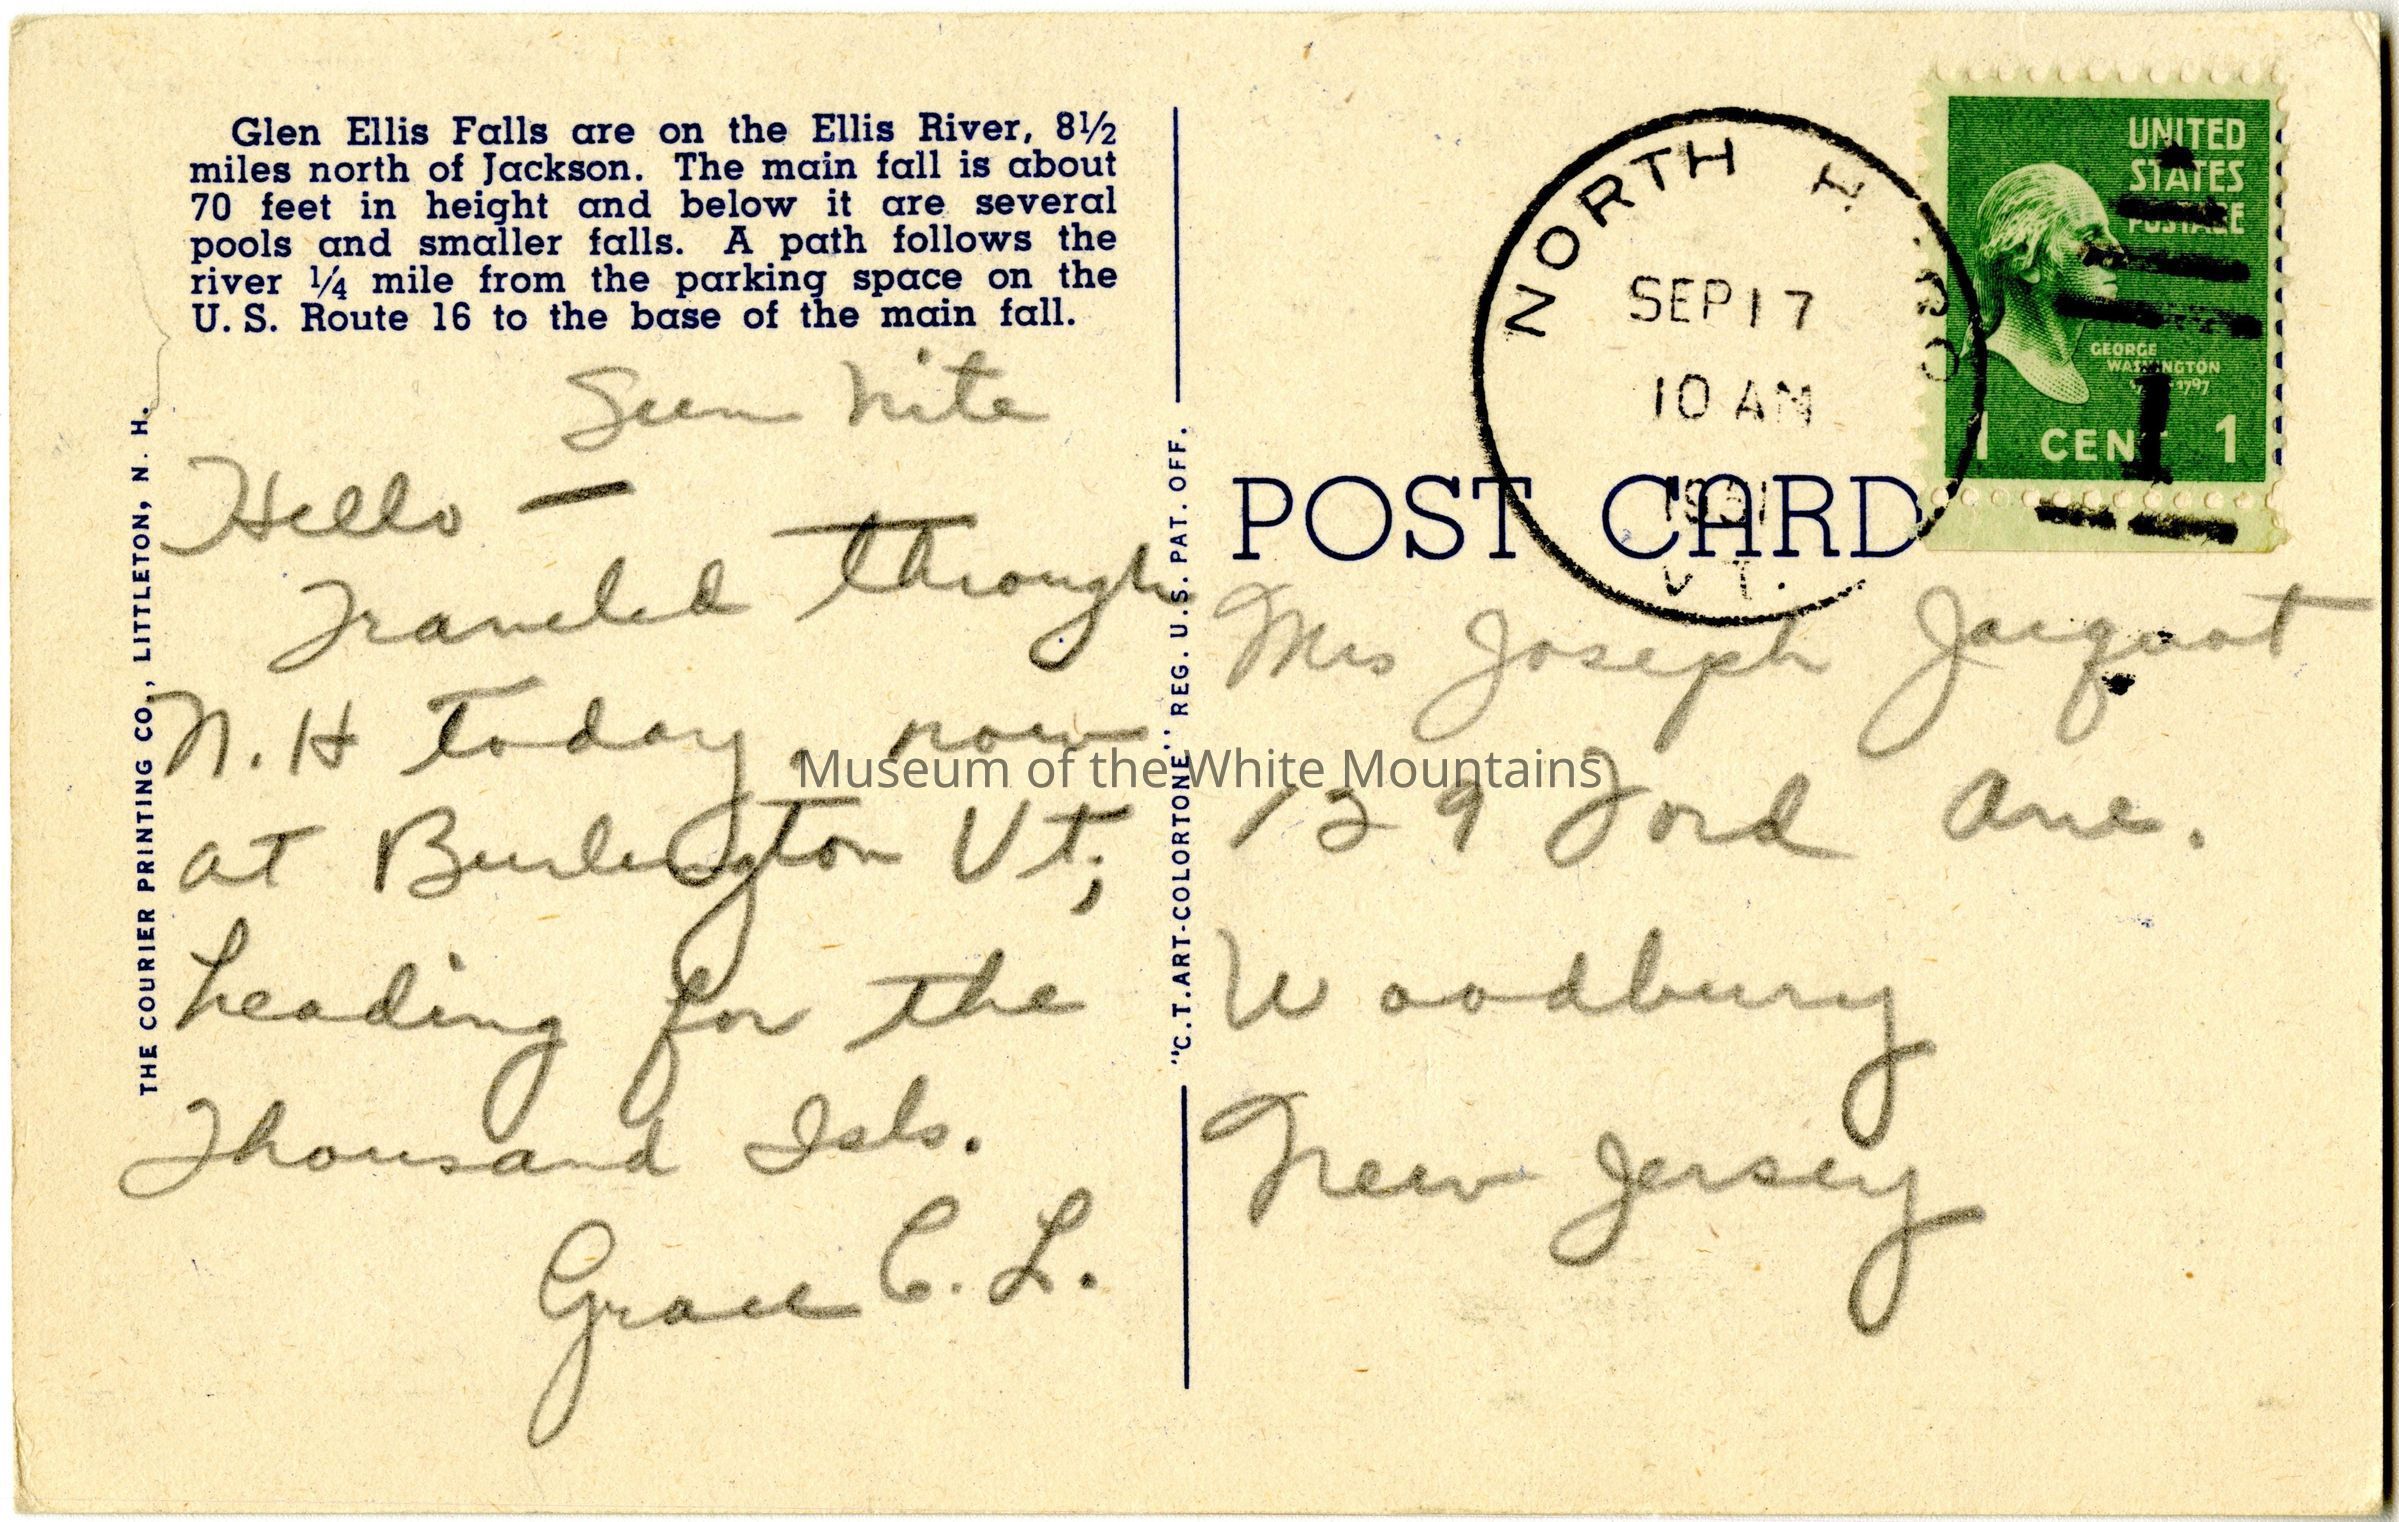 Glen Ellis Falls are on the Ellis River, 8½
miles north of Jackson. The main fall is about
70 feet in height and below it are several
pools and smaller falls. A path follows the
river ¼ mile from the parking space on the
U. S. Route 16 to the base of the main fall.
Sun nite
Hello —
Traveled through
N. H today, now
at Burlington Vt;
heading for the
Thousand Isls.
Grace C. L.
THE COURIER PRINTING CO., LITTLETON, N. H.
"C. T. ART-COLORTONE" REG. U.S. PAT. OFF.
NORTH H
SEP 17
10 AM
1951
VT.
UNITED
STATES
POSTAGE
GEORGE
WASHINGTON
1797
1 CENT 1
POST CARD
Mrs Joseph Jacquot
129 Ford Ave.
Woodbury
New Jersey
Museum of the White Mountains